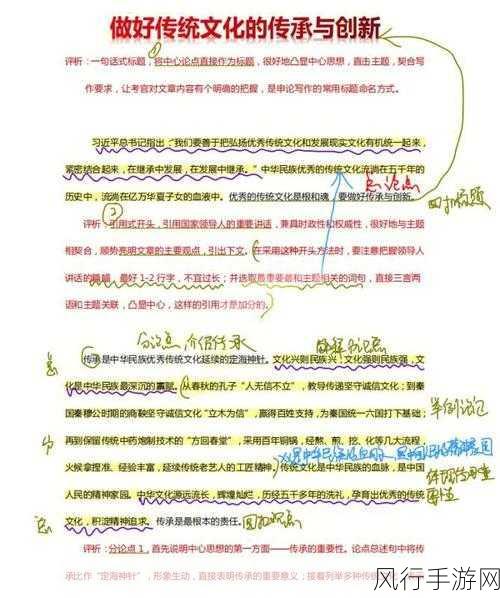 做好传统文化的传承与创新
评析：一句话式标题，将中心论点直接作为标题，很好地凸显中心思想，直击主题，契合写
作要求，让考官对文章内容有个明确的把握，是申论写作的常用标题命名方式。
习近平总书记指出：“我们要善于把弘扬优秀传统文化和发展现实文化有机统一起来，
紧密结合起来，在继承中发展，在发展中继承。”中华民族优秀的传统文化流淌在五千年的
总论点
历史中，流淌在亿万华夏子女的血液中。优秀的传统文化是根和魂，要做好传承与创新。
评析：引用式开头，引用国家领导人的重要讲话，兼具时政性和权威性，很好地与主题
相契合，顺势亮明文章的主要观点，引出下文。在采用这种开头方法时，要注意把握领导人
讲话的篇幅，最好1-2行字，不宜过长；并选取最重要最和主题相关的词句，直接三言两
语和主题关联，凸显中心，这样的引用才是加分的。
分论点
传承是中华民族优秀传统文化延续的定海神针。文化兴则民族兴，文化强则民族强，文
化是中华民族最深沉的禀赋。从春秋的孔子“人无信不立”，教导传递坚守诚信文化；到秦
国秦穆公时期的商鞅坚守诚信文化“立木为信”，赢得百姓支持，为秦国统一六国打下基础；
举例论证
再到保留传统中药炮制技术的“方回春堂”，采用百年铜锅，经熬、煎、挖、化等几大流程，
火候拿捏准、经验丰富，延续传统老艺人的工匠精神。传统文化是中华民族的血脉，是中国
人民的精神家园。中华文化源远流长，辉煌灿烂，历经五千多年的洗礼，孕育出优秀的传统
文化，积淀精神追求。传承是最根本的责任。
评析：分论点1，首先说明中心思想的第一方面——传承的重要性。论点总述句中将传
承比作“定海神针”，形象生动，直接表明传承的重要意义；接着列举多种传统
风行手游网